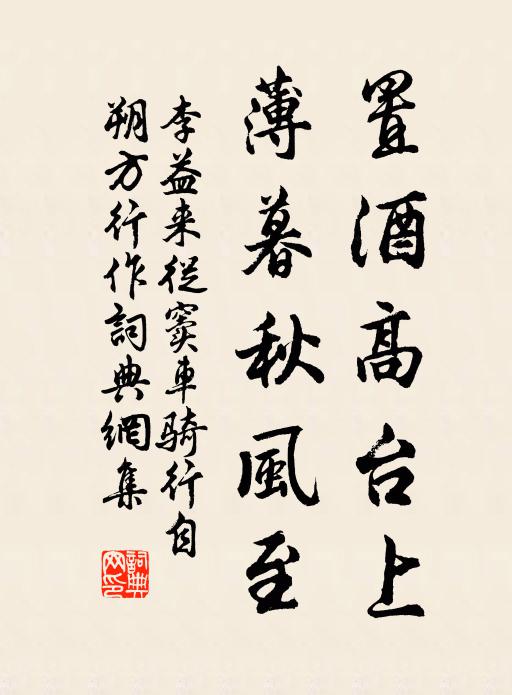 置酒高台上
薄暮秋風至
李益来從窦車騎行自
朔方行作詞典網集
詞典網印